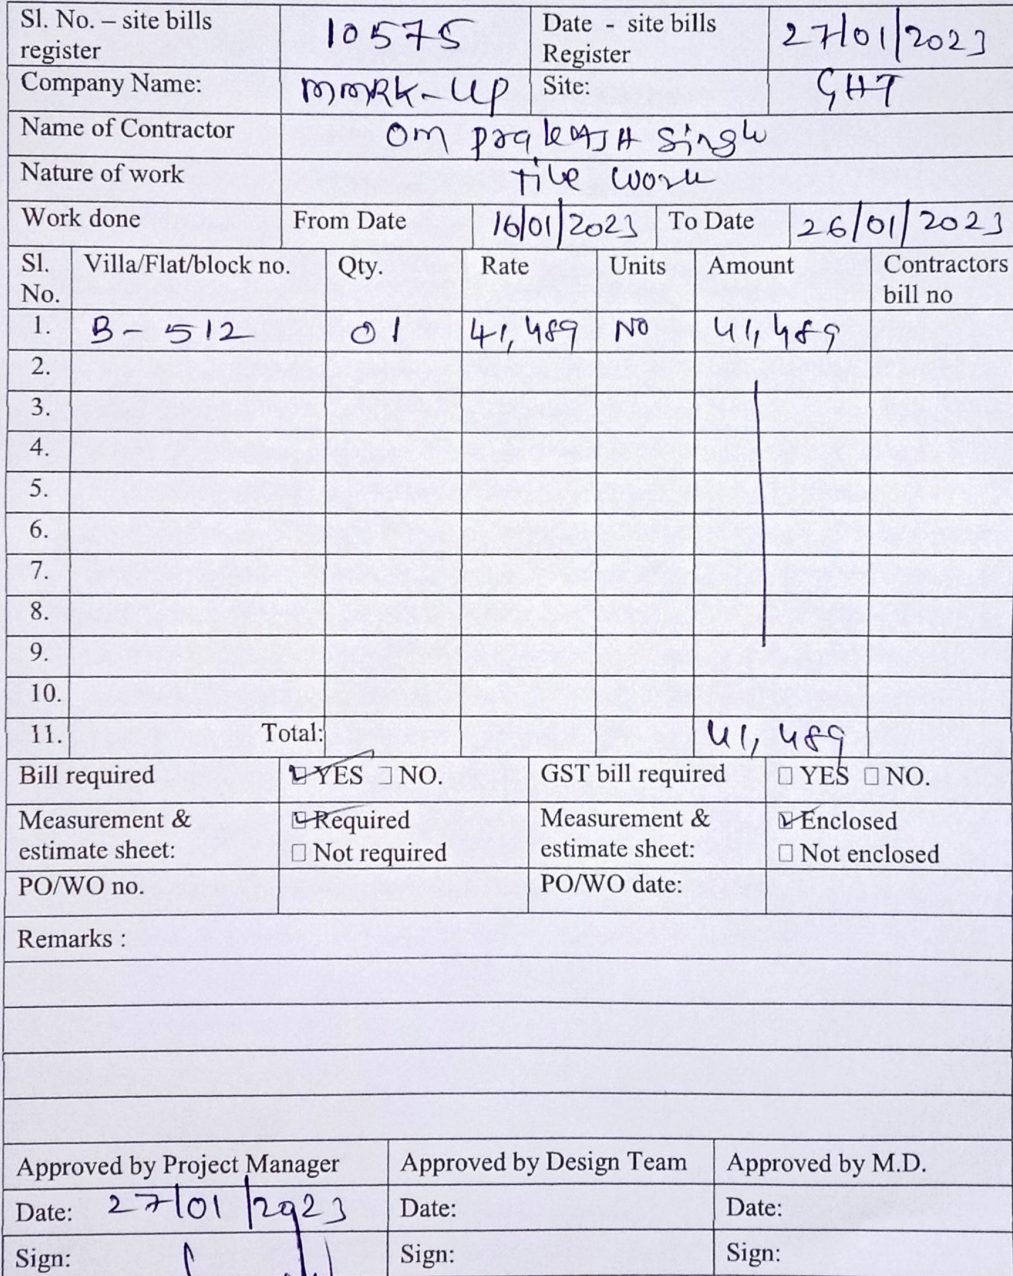 Sl. No. – site bills register 10575 Date - site bills Register 27/01/2023
Company Name: MMRK-UP Site: GHT
Name of Contractor Om prakASH Singh
Nature of work tile work
Work done From Date 16/01/2023 To Date 26/01/2023
Sl. No. Villa/Flat/block no. Qty. Rate Units Amount Contractors bill no
1. B-512 01 41,489 NO 41,489
2.
3.
4.
5.
6.
7.
8.
9.
10.
11. Total: 41,489
Bill required ☑ YES ☐ NO. GST bill required ☐ YES ☐ NO.
Measurement & estimate sheet: ☑ Required ☐ Not required Measurement & estimate sheet: ☑ Enclosed ☐ Not enclosed
PO/WO no. PO/WO date:
Remarks :
Approved by Project Manager Approved by Design Team Approved by M.D.
Date: 27/01/2023 Date: Date:
Sign: Sign: Sign: